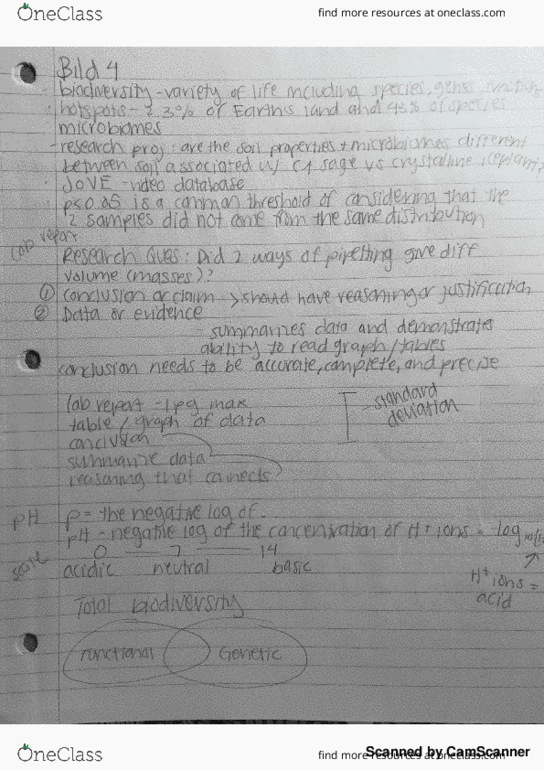 OneClass
find more resources at oneclass.com
Bild 4
biodiversity - variety of life including species, genes,
hotspots - 2.3% of Earth's land and 43% of species
microbiomes
research proj: are the soil properties + microbiomes different
between soil associated w/ CA sage vs crystalline iceplant?
JoVE - video database
p<0.05 is a common threshold of considering that the
2 samples did not come from the same distribution
lab report
Research Ques: Did 2 ways of pipetting give diff
volume (masses)?
① conclusion or claim > should have reasoning or justification
② Data or evidence
- summarizes data and demonstrates
ability to read graph/tables
conclusion needs to be accurate, complete, and precise
lab report - 1 pg max
table / graph of data
conclusion
summarize data
reasoning that connects
standard
deviation
pH
scale
p = the negative log of.
pH - negative log of the concentration of H+ ions = -log
0 7 14
acidic neutral basic
H+ ions =
acid
Total biodiversity
Functional Genetic
OneClass
find more resources at oneclass.com
Scanned by CamScanner